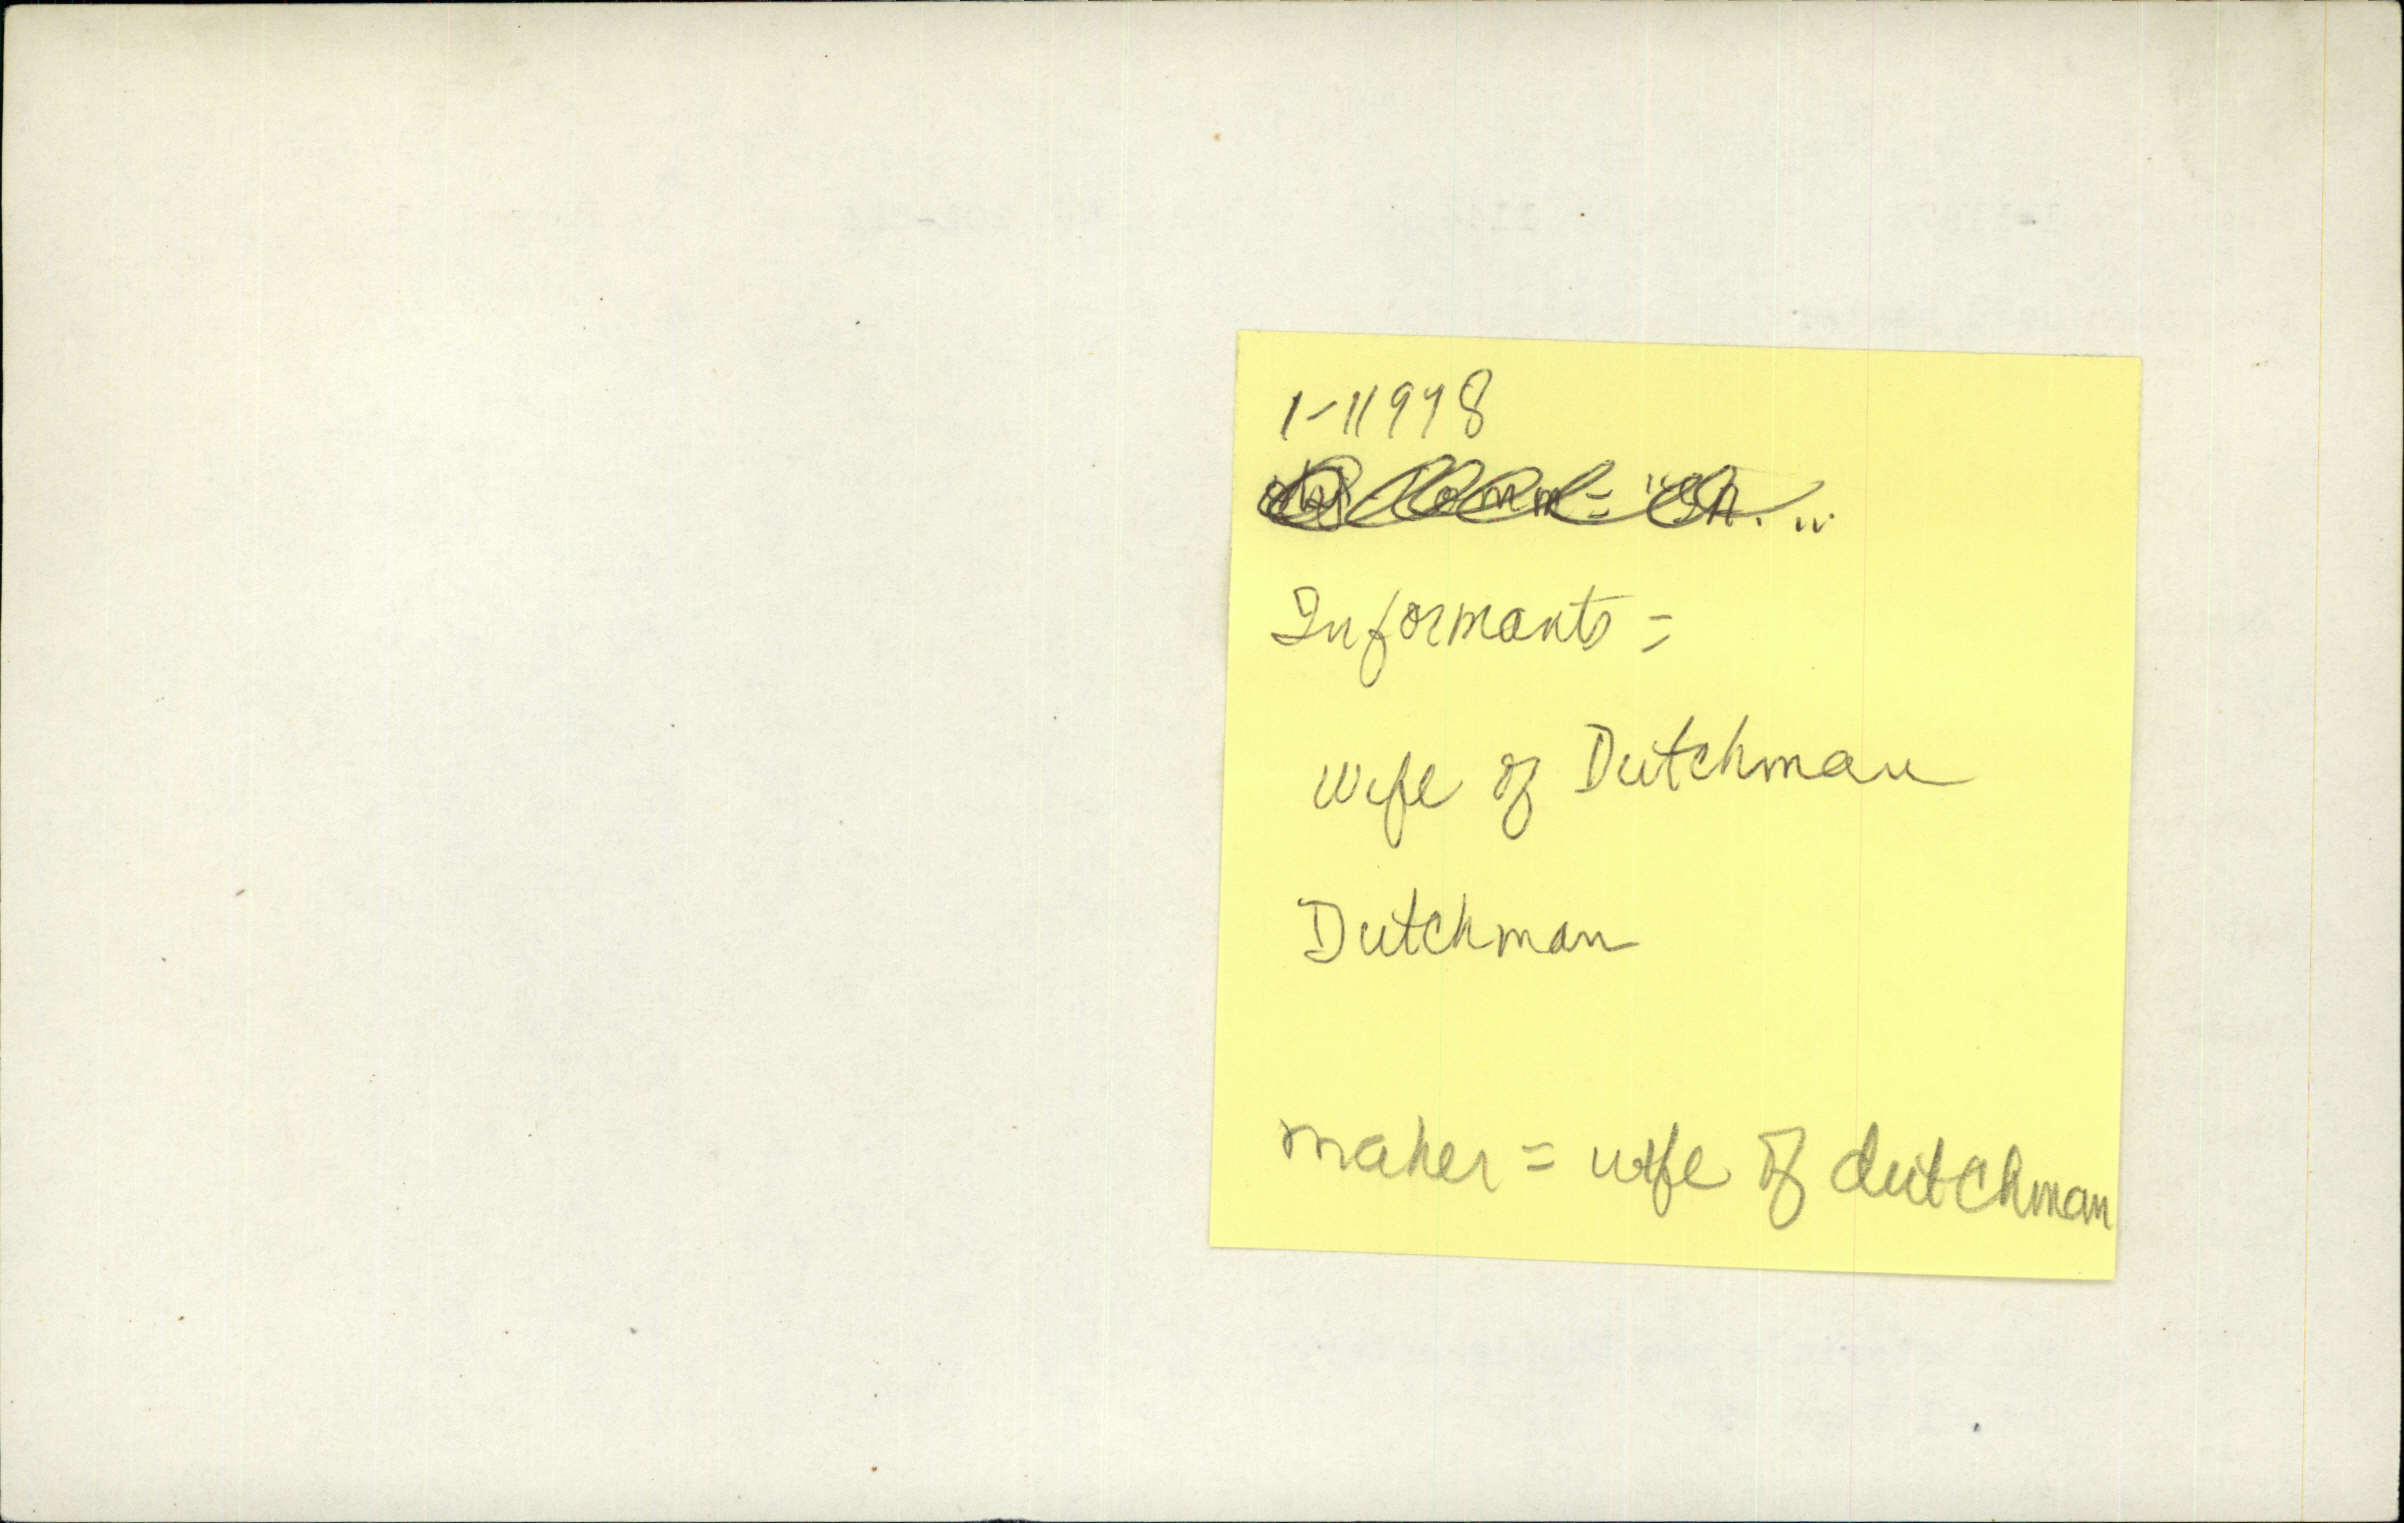 1-11998
Informants =
Wife of Dutchman
Dutchman
maker = wife of dutchman